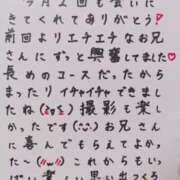 今月2回も会いに
きてくれてありがとう!
前回よりエチエチなお兄
さんにずっと興奮してました♥
長めのコースだったから
まったりイチャイチャできまし
たね(≧ε≦) 撮影も楽し
かったです(^^) お兄さん
に喜んでもらえてよかっ
た〜(〃ω〃) これからもいっ
ぱい楽しい思い出つくろ